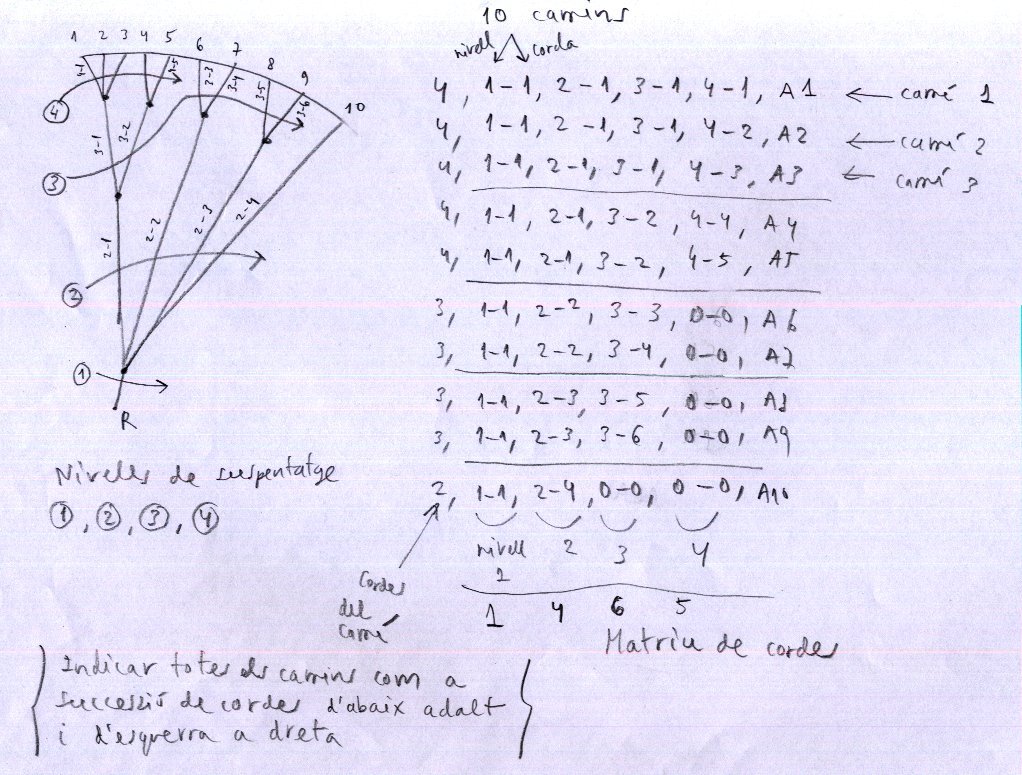 1 2 3 4 5 6 7 8 9 10
4-1
4-5
3-3
3-4
3-5
3-6
④
3-1
3-2
③
2-1
2-2
2-3
2-4
②
①
R
Nivells de suspentatge
①, ②, ③, ④
10 camins
nivell corda
4, 1-1, 2-1, 3-1, 4-1, A1 ← camí 1
4, 1-1, 2-1, 3-1, 4-2, A2 ← camí 2
4, 1-1, 2-1, 3-1, 4-3, A3 ← camí 3
4, 1-1, 2-1, 3-2, 4-4, A4
4, 1-1, 2-1, 3-2, 4-5, A5
3, 1-1, 2-2, 3-3, 0-0, A6
3, 1-1, 2-2, 3-4, 0-0, A7
3, 1-1, 2-3, 3-5, 0-0, A8
3, 1-1, 2-3, 3-6, 0-0, A9
2, 1-1, 2-4, 0-0, 0-0, A10
nivell 2 3 4
1
Cordes
del
camí
1 4 6 5
Matriu de cordes
Indicar totes els camins com a
successió de cordes d'abaix adalt
i d'esquerra a dreta